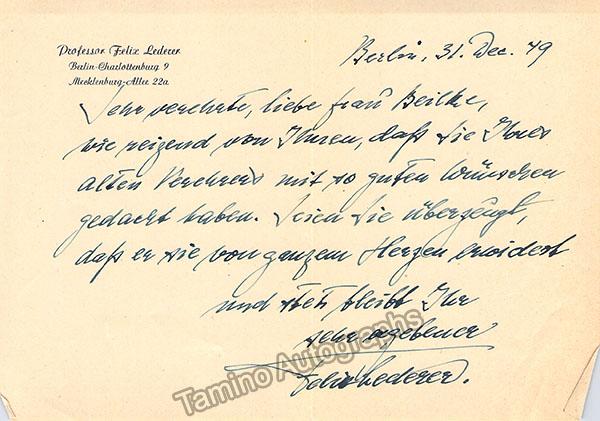 Professor Felix Lederer
Berlin-Charlottenburg 9
Mecklenburg-Allee 22a
Berlin, 31. Dec. 49
Sehr verehrte, liebe Frau Beilke,
wie reizend von Ihnen, daß Sie Ihres
alten Verehrers mit so guten Wünschen
gedacht haben. Seien Sie überzeugt,
daß er sie von ganzem Herzen erwidert
und stets bleibt Ihr
sehr ergebener
Felix Lederer.
Tamino Autographs